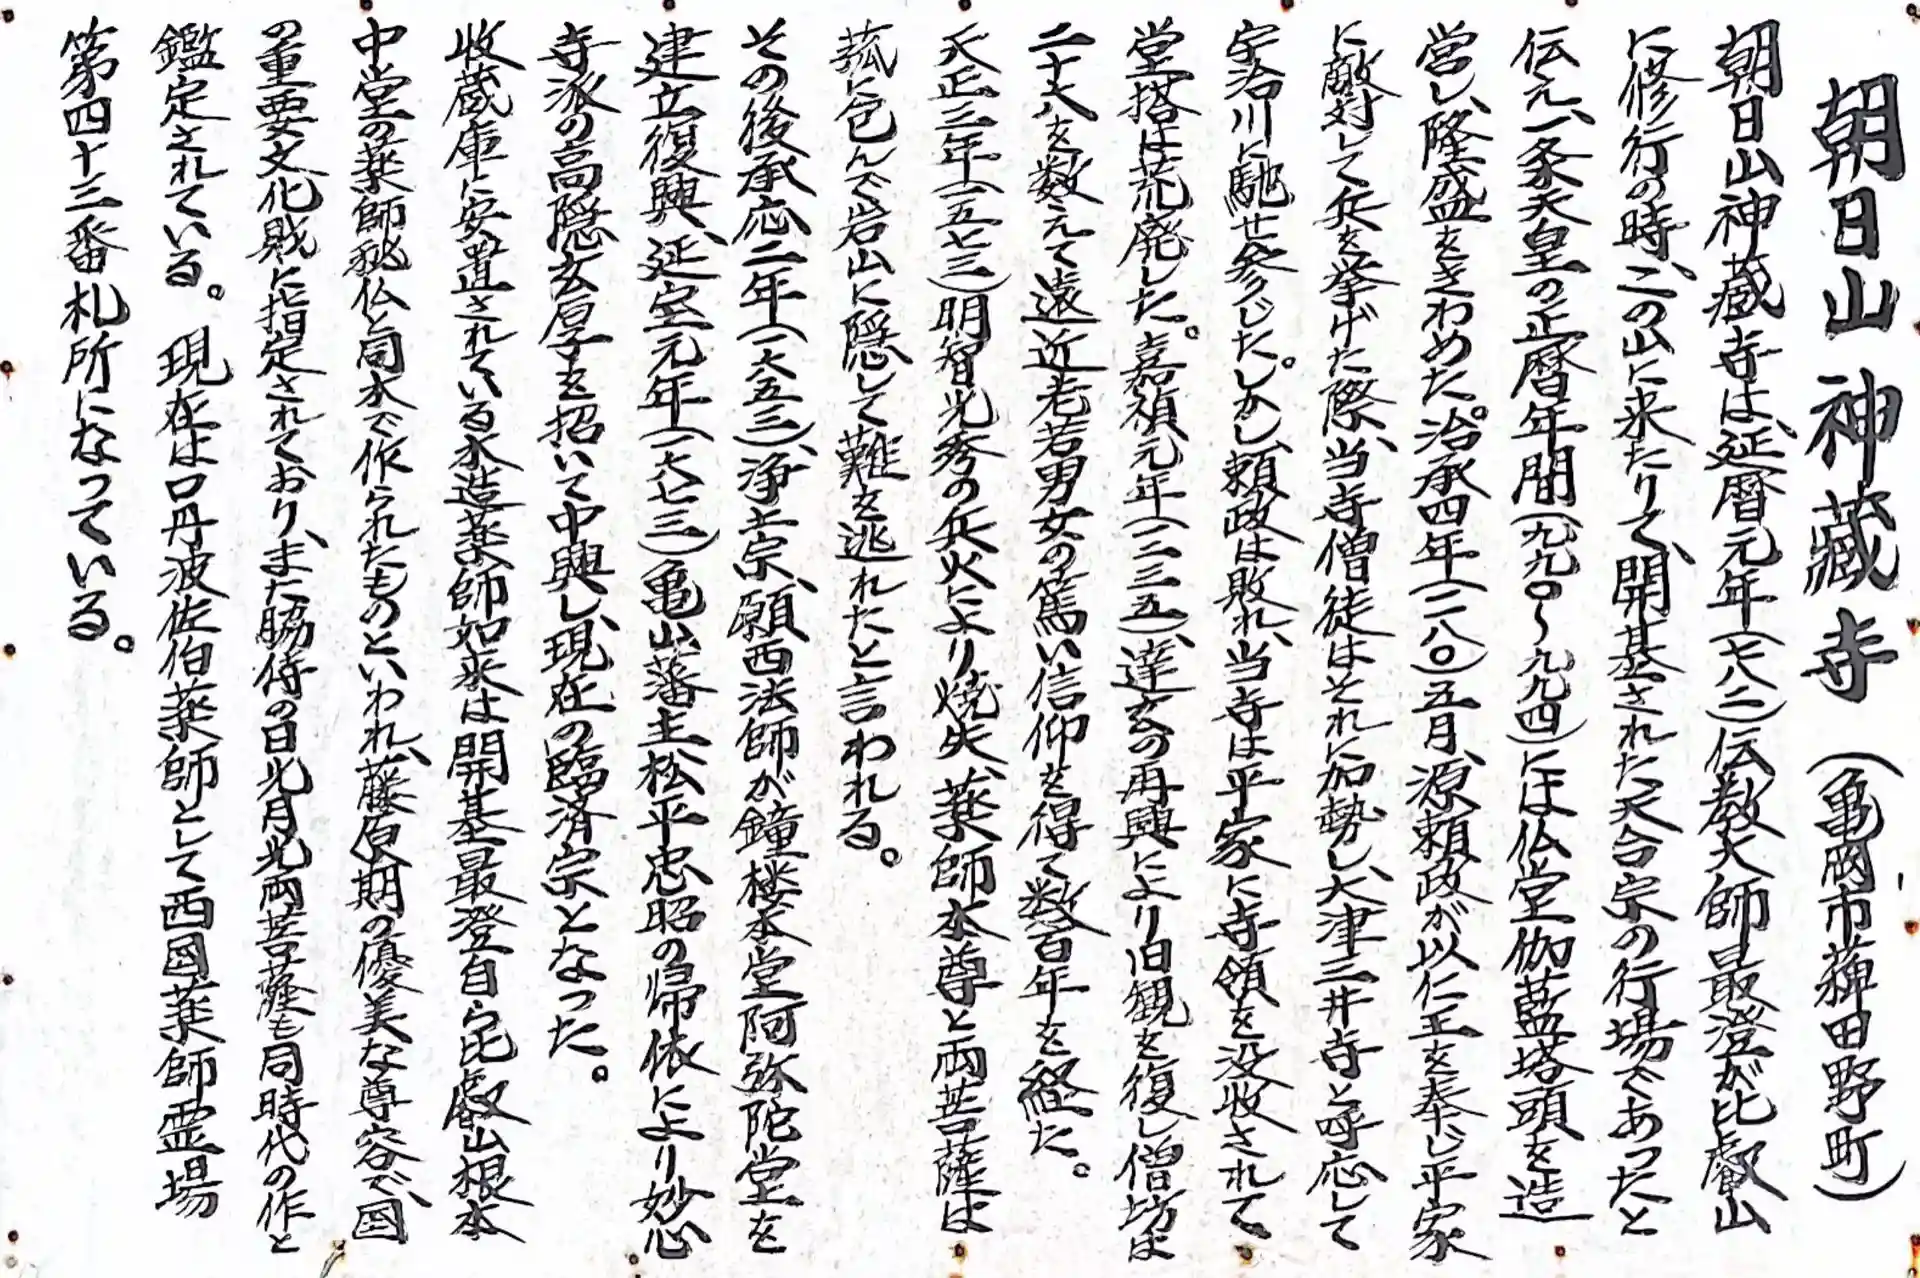 朝日山 神蔵寺 (亀岡市薭田野町)
朝日山神蔵寺は、延暦元年(七八二)伝教大師最澄が比叡山
に修行の時、この山に来たりて、開基された天台宗の行場であったと
伝え、一条天皇の正暦年間(九九〇〜九九四)には仏堂伽藍塔頭を造
営し、隆盛をきわめた。治承四年(一一八〇)五月、源頼政が以仁王を奉じ平家
に敵対して兵を挙げた際、当寺僧徒はそれに加勢し、大津三井寺と呼応して
宇治川に馳せ参じた。しかし、頼政は敗れ、当寺は平家に寺領を没収されて、
堂搭は荒廃した。嘉禎元年(一二三五)、達玄の再興により旧観を復し僧坊は
二十六を数えて遠近老若男女の篤い信仰を得て数百年を経た。
天正三年(一五七三)明智光秀の兵火により焼失、薬師本尊と両菩薩は
菰に包んで岩山に隠して難を逃れたと言われる。
その後承応二年(一六五三)、浄土宗、願西法師が鐘楼本堂阿弥陀堂を
建立復興、延宝元年(一六七三)亀山藩主松平忠昭の帰依により妙心
寺派の高隠玄厚を招いて中興し、現在の臨済宗となった。
收蔵庫に安置されている木造薬師如来は開基最澄自ら比叡山根本
中堂の薬師秘仏と同木で作られたものといわれ、藤原期の優美な尊容で、国
の重要文化財に指定されており、また脇侍の日光月光両菩薩も同時代の作と
鑑定されている。現在は口丹波佐伯薬師として西国薬師霊場
第四十三番札所になっている。